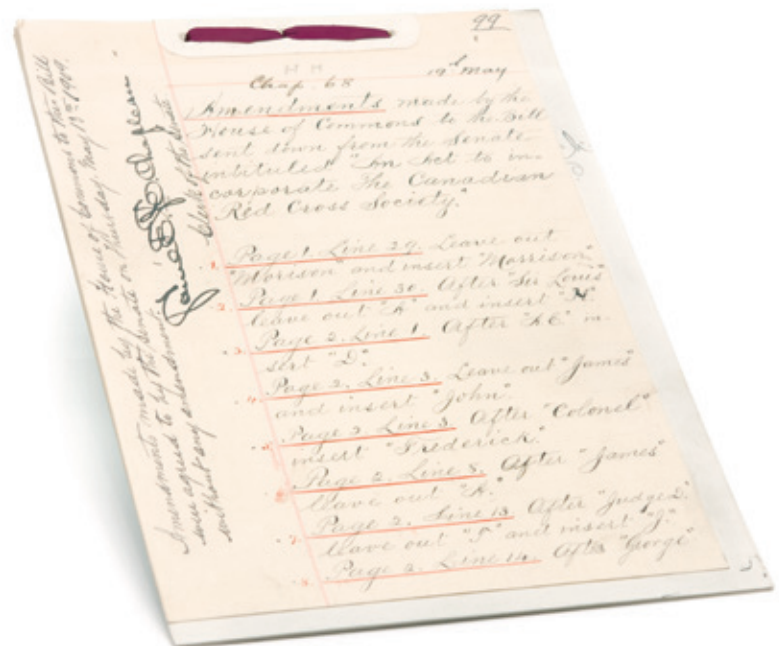 99
H H
Chap. 68 19th May
Amendments made by the
House of Commons to the Bill
sent down from the Senate
intituled "An Act to in-
corporate The Canadian
Red Cross Society."
1. Page 1. Line 29. Leave out
"Morison" and insert "Morrison"
2. Page 1. Line 30. After "Sir Louis"
leave out "A" and insert "H"
3. Page 2. Line 1. After "K C" in-
sert "D".
4. Page 2. Line 3. Leave out "James"
and insert "John".
5. Page 2. Line 3. After "Colonel"
insert "Frederick."
6. Page 2. Line 8. After "James"
leave out "A."
7. Page 2. Line 13. After "Judge D."
leave out "F" and insert "J."
8. Page 2. Line 14. After "George"
Amendments made by the House of Commons to this Bill
were agreed to by the Senate on Thursday, May 13th 1909.
without any amendment.
Clerk of the Senate